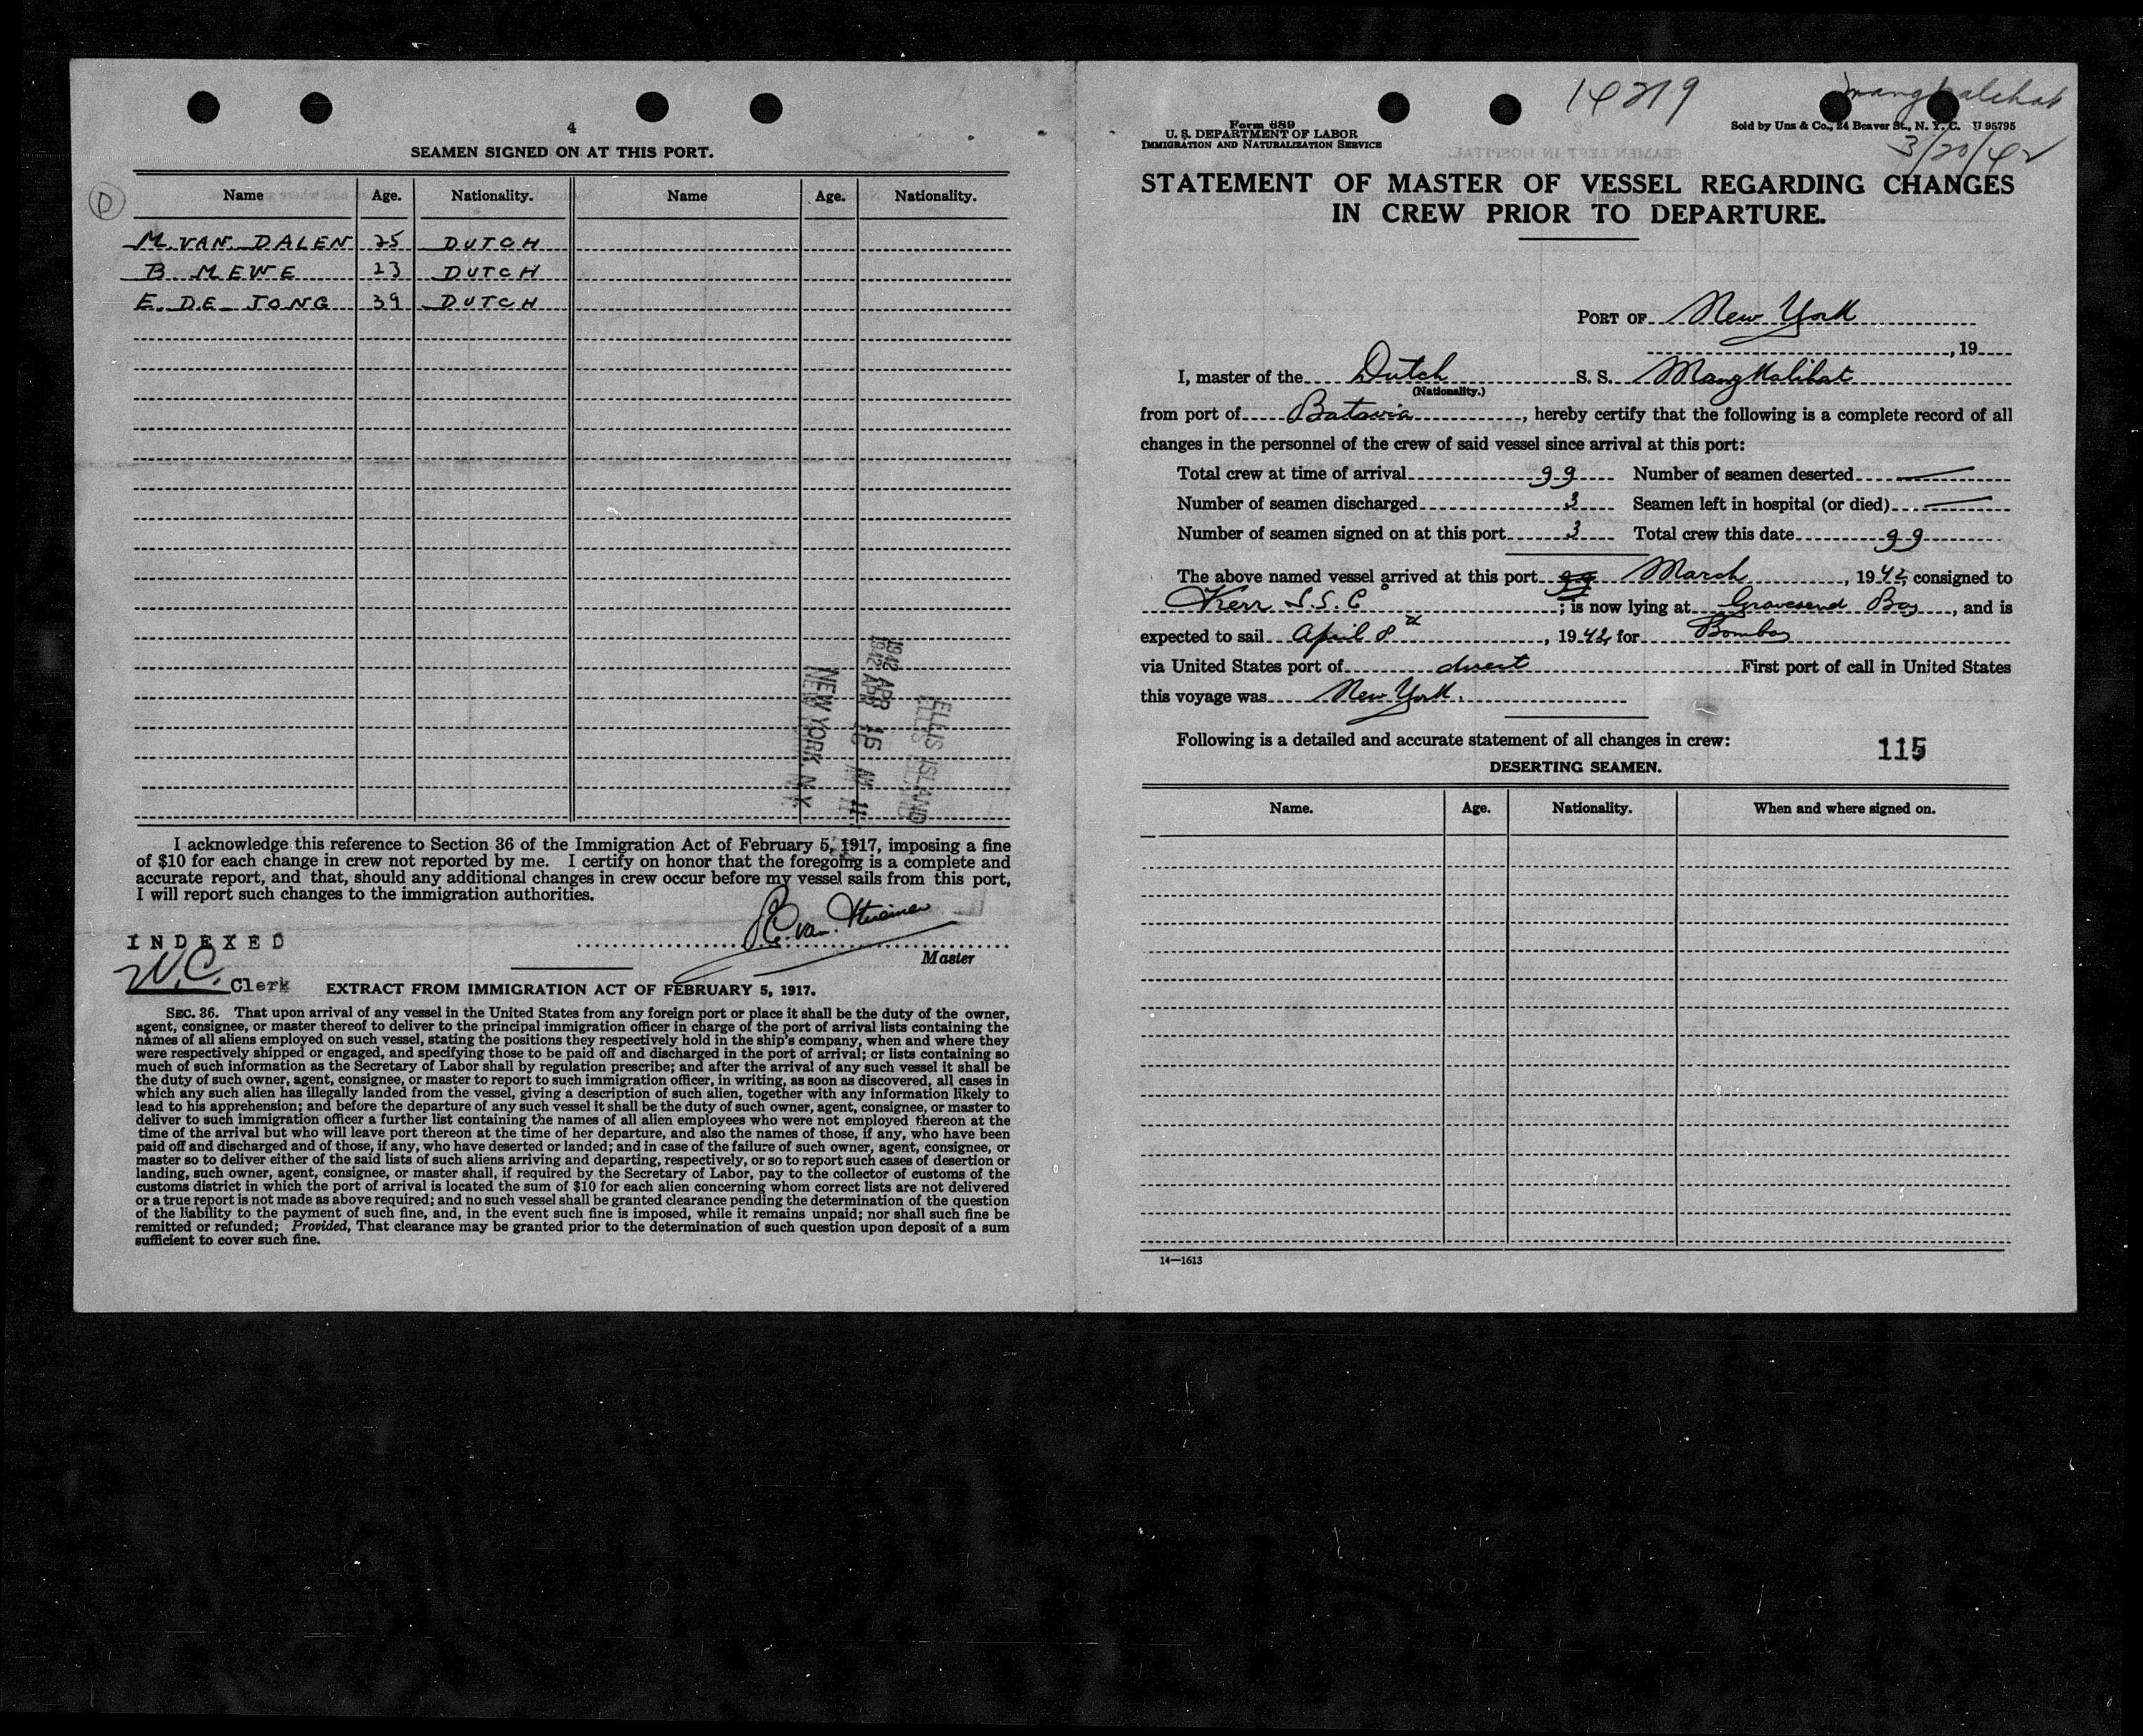 4
SEAMEN SIGNED ON AT THIS PORT.
Name Age. Nationality. Name Age. Nationality.
D
M. VAN DALEN 25 DUTCH
B MEWE 23 DUTCH
E. DE JONG 39 DUTCH
1942 APR 16 AM 11
ELLIS ISLAND
NEW YORK, N.Y.
I acknowledge this reference to Section 36 of the Immigration Act of February 5, 1917, imposing a fine
of $10 for each change in crew not reported by me. I certify on honor that the foregoing is a complete and
accurate report, and that, should any additional changes in crew occur before my vessel sails from this port,
I will report such changes to the immigration authorities.
INDEXED
Master
W.C. Clerk
EXTRACT FROM IMMIGRATION ACT OF FEBRUARY 5, 1917.
SEC. 36. That upon arrival of any vessel in the United States from any foreign port or place it shall be the duty of the owner,
agent, consignee, or master thereof to deliver to the principal immigration officer in charge of the port of arrival lists containing the
names of all aliens employed on such vessel, stating the positions they respectively hold in the ship's company, when and where they
were respectively shipped or engaged, and specifying those to be paid off and discharged in the port of arrival; or lists containing so
much of such information as the Secretary of Labor shall by regulation prescribe; and after the arrival of any such vessel it shall be
the duty of such owner, agent, consignee, or master to report to such immigration officer, in writing, as soon as discovered, all cases in
which any such alien has illegally landed from the vessel, giving a description of such alien, together with any information likely to
lead to his apprehension; and before the departure of any such vessel it shall be the duty of such owner, agent, consignee, or master to
deliver to such immigration officer a further list containing the names of all alien employees who were not employed thereon at the
time of the arrival but who will leave port thereon at the time of her departure, and also the names of those, if any, who have been
paid off and discharged and of those, if any, who have deserted or landed; and in case of the failure of such owner, agent, consignee, or
master so to deliver either of the said lists of such aliens arriving and departing, respectively, or so to report such cases of desertion or
landing, such owner, agent, consignee, or master shall, if required by the Secretary of Labor, pay to the collector of customs of the
customs district in which the port of arrival is located the sum of $10 for each alien concerning whom correct lists are not delivered
or a true report is not made as above required; and no such vessel shall be granted clearance pending the determination of the question
of the liability to the payment of such fine, and, in the event such fine is imposed, while it remains unpaid; nor shall such fine be
remitted or refunded; Provided, That clearance may be granted prior to the determination of such question upon deposit of a sum
sufficient to cover such fine.
14219
Mangkalihat
Form 689
U. S. DEPARTMENT OF LABOR
IMMIGRATION AND NATURALIZATION SERVICE
Sold by Unz & Co., 24 Beaver St., N. Y. C. U 95795
3/20/42
STATEMENT OF MASTER OF VESSEL REGARDING CHANGES
IN CREW PRIOR TO DEPARTURE.
PORT OF New York
, 19
I, master of the Dutch S. S. Mangkalihat
(Nationality.)
from port of Batavia, hereby certify that the following is a complete record of all
changes in the personnel of the crew of said vessel since arrival at this port:
Total crew at time of arrival 99 Number of seamen deserted —
Number of seamen discharged 3 Seamen left in hospital (or died) —
Number of seamen signed on at this port 3 Total crew this date 99
The above named vessel arrived at this port March, 1942, consigned to
Kerr S.S. Co; is now lying at Gravesend Bay, and is
expected to sail April 8th, 1942, for Bombay
via United States port of direct First port of call in United States
this voyage was New York.
Following is a detailed and accurate statement of all changes in crew:
115
DESERTING SEAMEN.
Name. Age. Nationality. When and where signed on.
14—1613